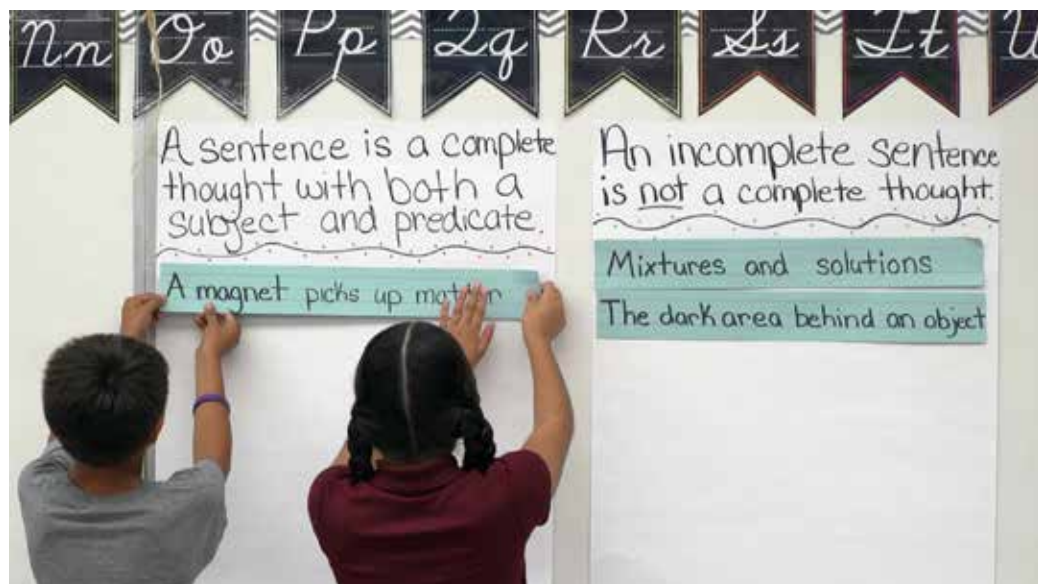 Nn Oo Pp Qq Rr Ss Tt U
A sentence is a complete
thought with both a
subject and predicate.
A magnet picks up matter
An incomplete sentence
is not a complete thought.
Mixtures and solutions
The dark area behind an object